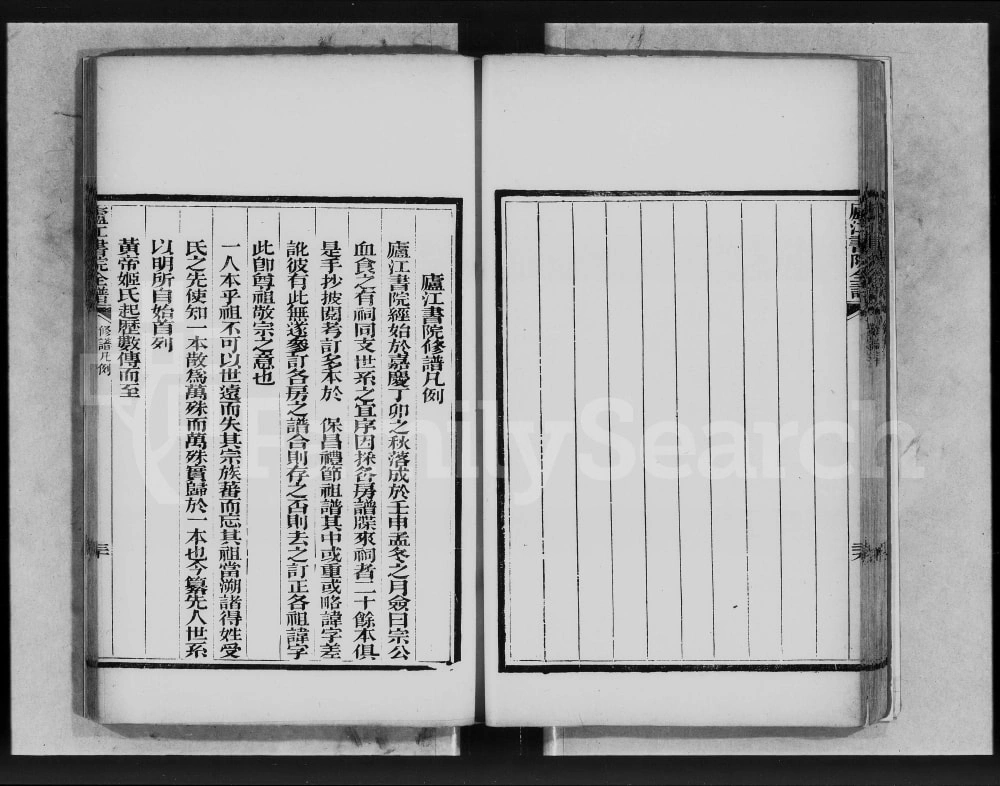 廬江書院修譜凡例
廬江書院經始於嘉慶丁卯之秋落成於壬申孟冬之月僉曰宗公
血食之有祠同支世系之宜序因採各房譜牒來祠者二十餘本俱
是手抄披閱考訂多本於 保昌禮節祖譜其中或重或略諱字差
訛彼有此無遂參訂各房之譜合則存之否則去之訂正各祖諱字
此卽尊祖敬宗之意也
一人本乎祖不可以世遠而失其宗族蕃而忘其祖當溯諸得姓受
氏之先使知一本散爲萬殊而萬殊實歸於一本也今纂先人世系
以明所自始首列
黃帝姬氏起歷數傳而至
廬江書院全譜
修譜凡例
廬江書院全譜
FamilySearch